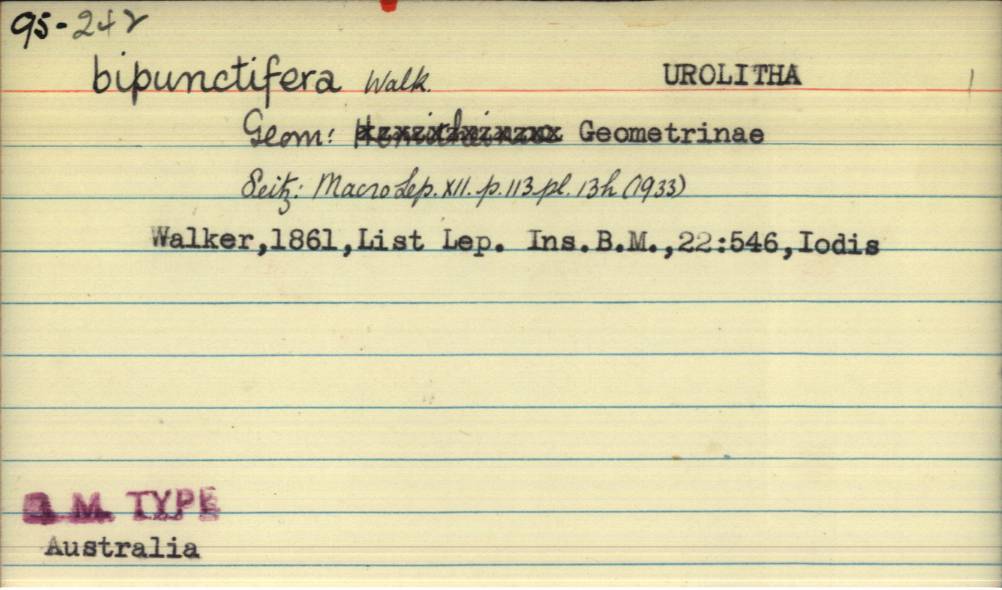 95-242
bipunctifera Walk. UROLITHA
Geom: Geometrinae
Seitz: Macro Lep. XII. p. 113 pl. 13h (1933)
Walker,1861,List Lep. Ins.B.M.,22:546,Iodis
B.M. TYPE
Australia